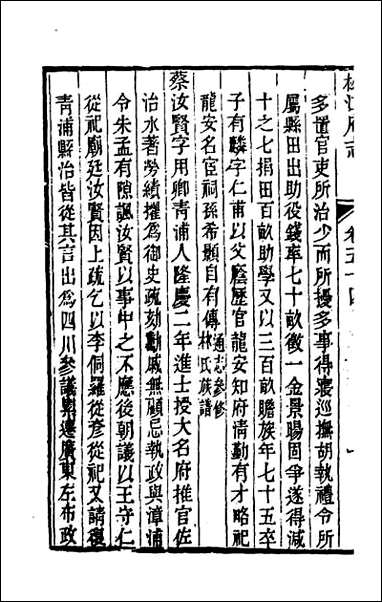 松江府志 卷五十四
多置官吏所治少而所擾多事得寢巡撫胡執禮令所
屬縣田出助役錢率七十畝徵一金景暘固爭遂得減
十之七捐田百畝助學又以三百畝贍族年七十五卒
子有驎字仁甫以父廕歷官龍安知府淸勤有才略祀
龍安名宦祠孫希顥自有傳 通志參修
林氏族譜
蔡汝賢字用卿靑浦人隆慶二年進士授大名府推官佐
治水著勞績擢爲御史疏劾勳戚無顧忌執政與漳浦
令朱孟有隙諷汝賢以事中之不應後朝議以王守仁
從祀廟廷汝賢因上疏乞以李侗羅從彥從祀又請復
靑浦縣治皆從其言出爲四川參議累遷廣東左布政